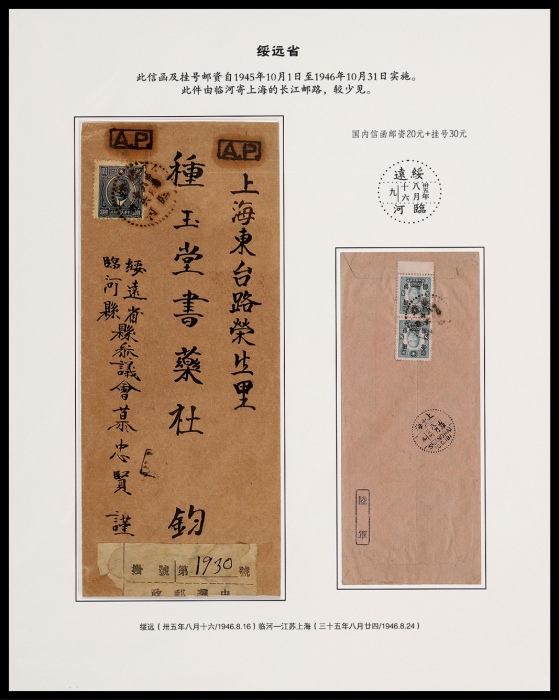 绥远省
此信函及挂号邮资自1945年10月1日至1946年10月31日实施。
此件由临河寄上海的长江邮路，较少见。
国内信函邮资20元+挂号30元
綏遠
卅五年
八月
十六
九
臨河
A.P.
A.P.
上海東台路榮生里
種玉堂書藥社 鈞
綏遠省
臨河縣縣參議會慕忠賢 謹
掛號第1930號
陸軍
绥远（卅五年八月十六/1946.8.16）临河—江苏上海（三十五年八月廿四/1946.8.24）